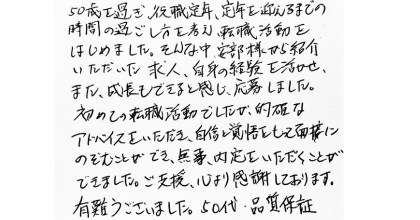 50歳を過ぎ、役職定年、定年を迎えるまでの
時間の過ごし方を考え、転職活動を
はじめました。そんな中、安部様から紹介
いただいた求人、自身の経験を活かせ、
また、成長もできると感じ、応募しました。
初めての転職活動でしたが、的確な
アドバイスをいただき、自信と覚悟をもって面接に
のぞむことができ、無事、内定をいただくことが
できました。ご支援、心より感謝しております。
有難うございました。50代・品質保証